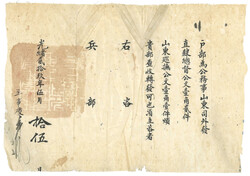 戶部為公務事山東司外發
直隸總督公文壹角貳件
山東巡撫公文壹角壹件項
貴部查收轉發可也須至咨者
右咨
兵部
光緒貳拾玖年伍月
拾伍